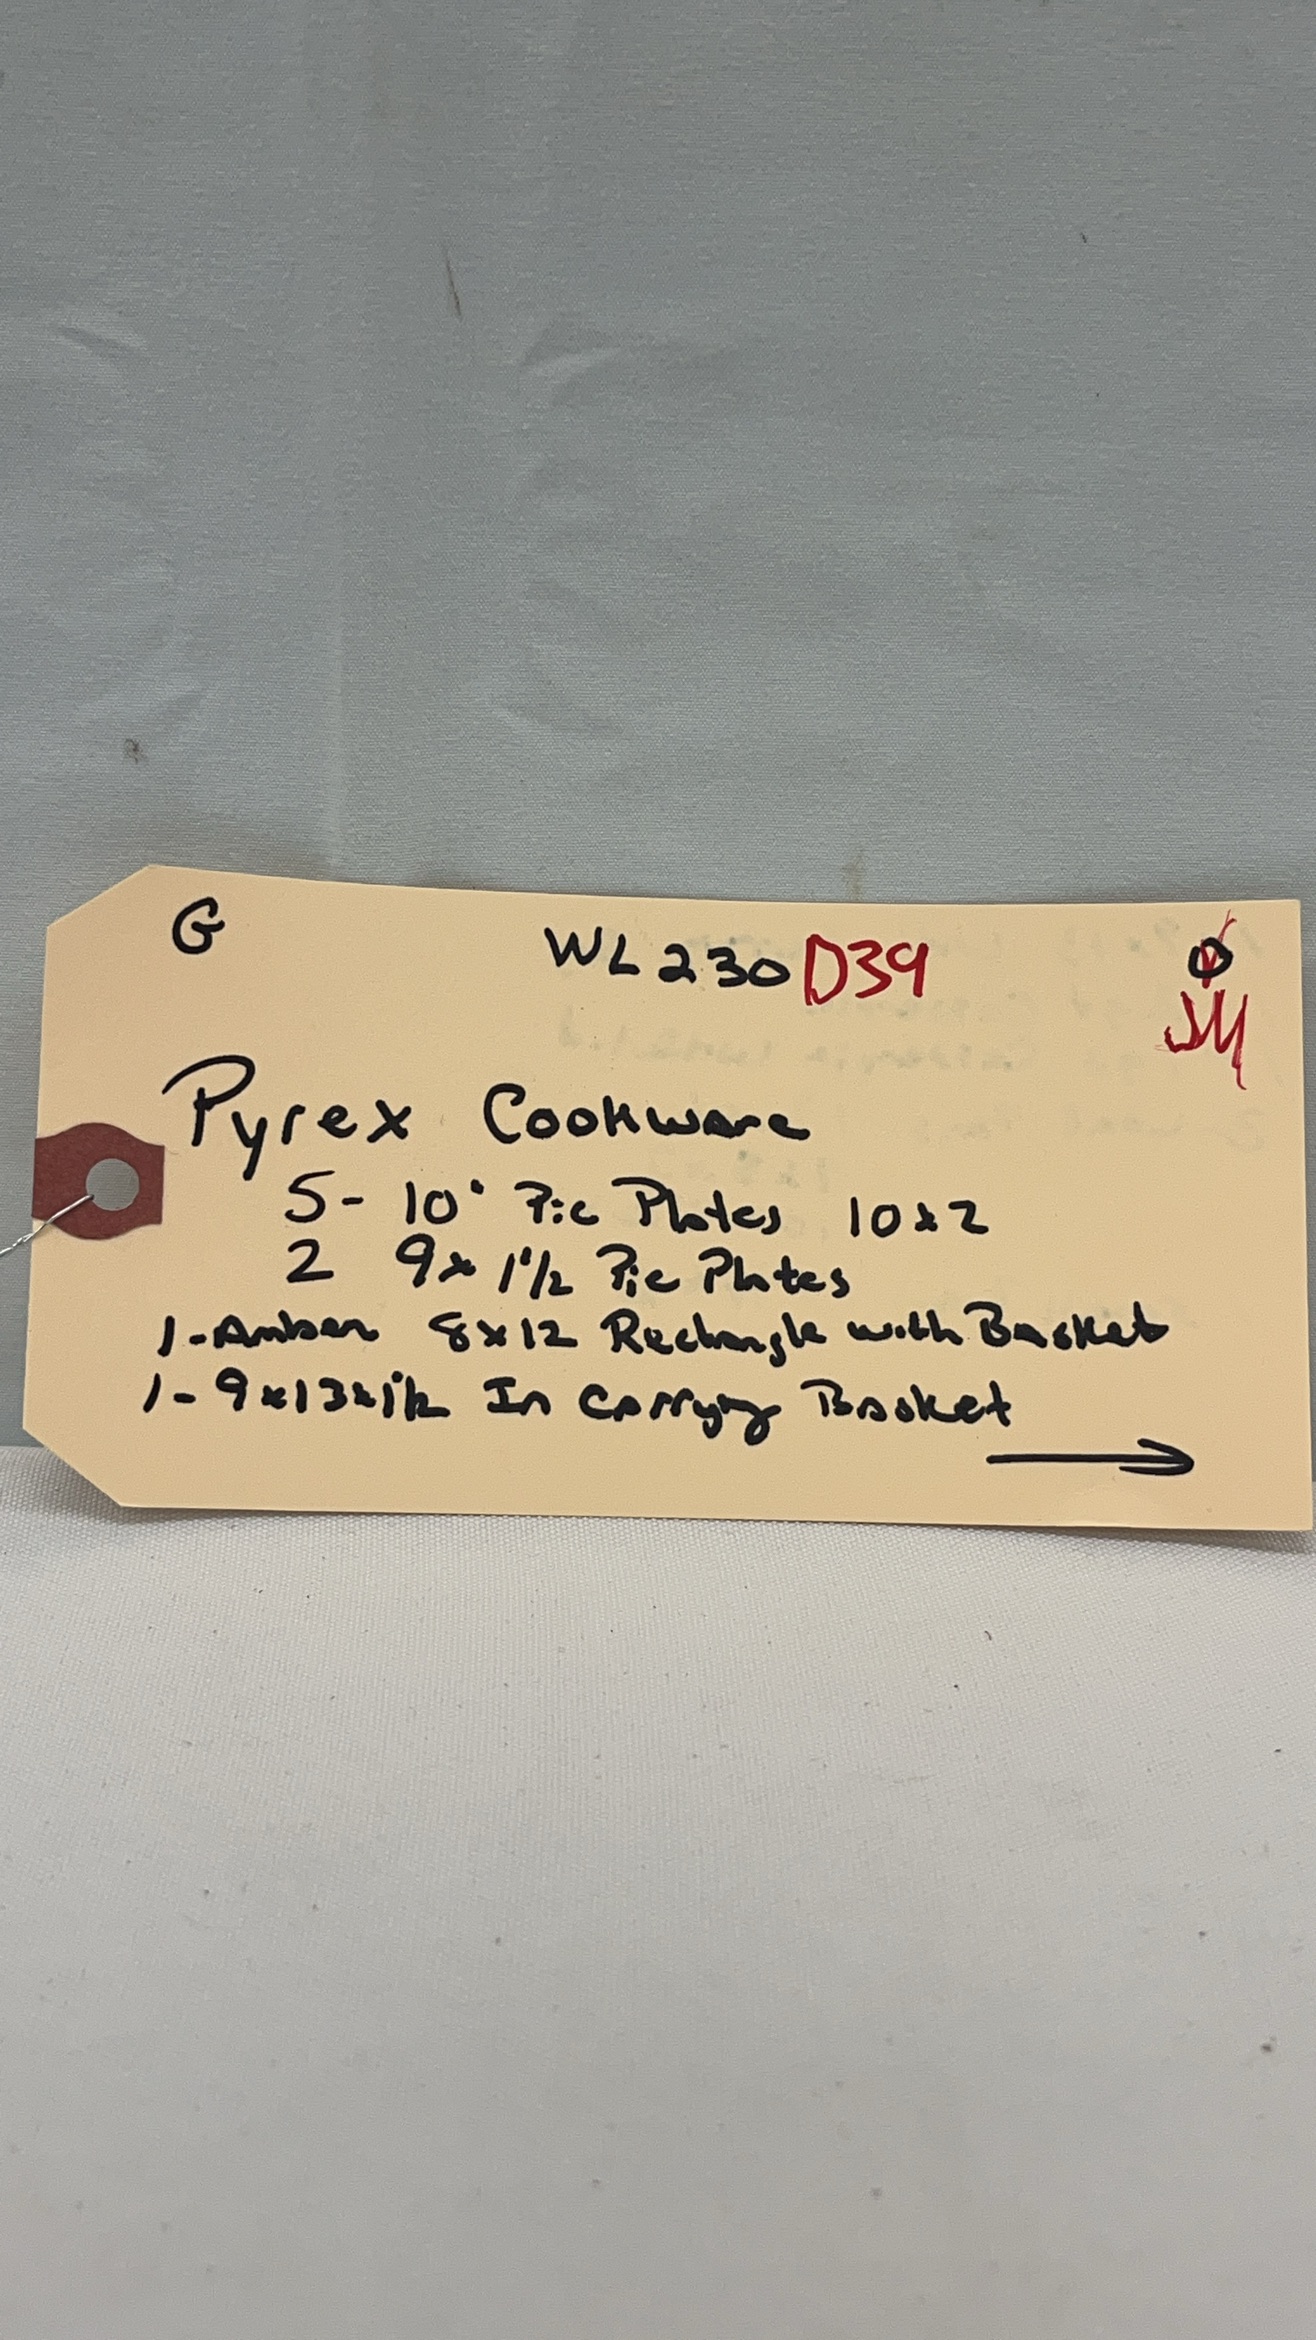 G WL230 D39 O
JM
Pyrex Cookware
5- 10" Pie Plates 10x2
2 9x1 1/2 Pie Plates
1-Amber 8x12 Rectangle with Basket
1-9x13x1 1/2 In Carrying Basket
→